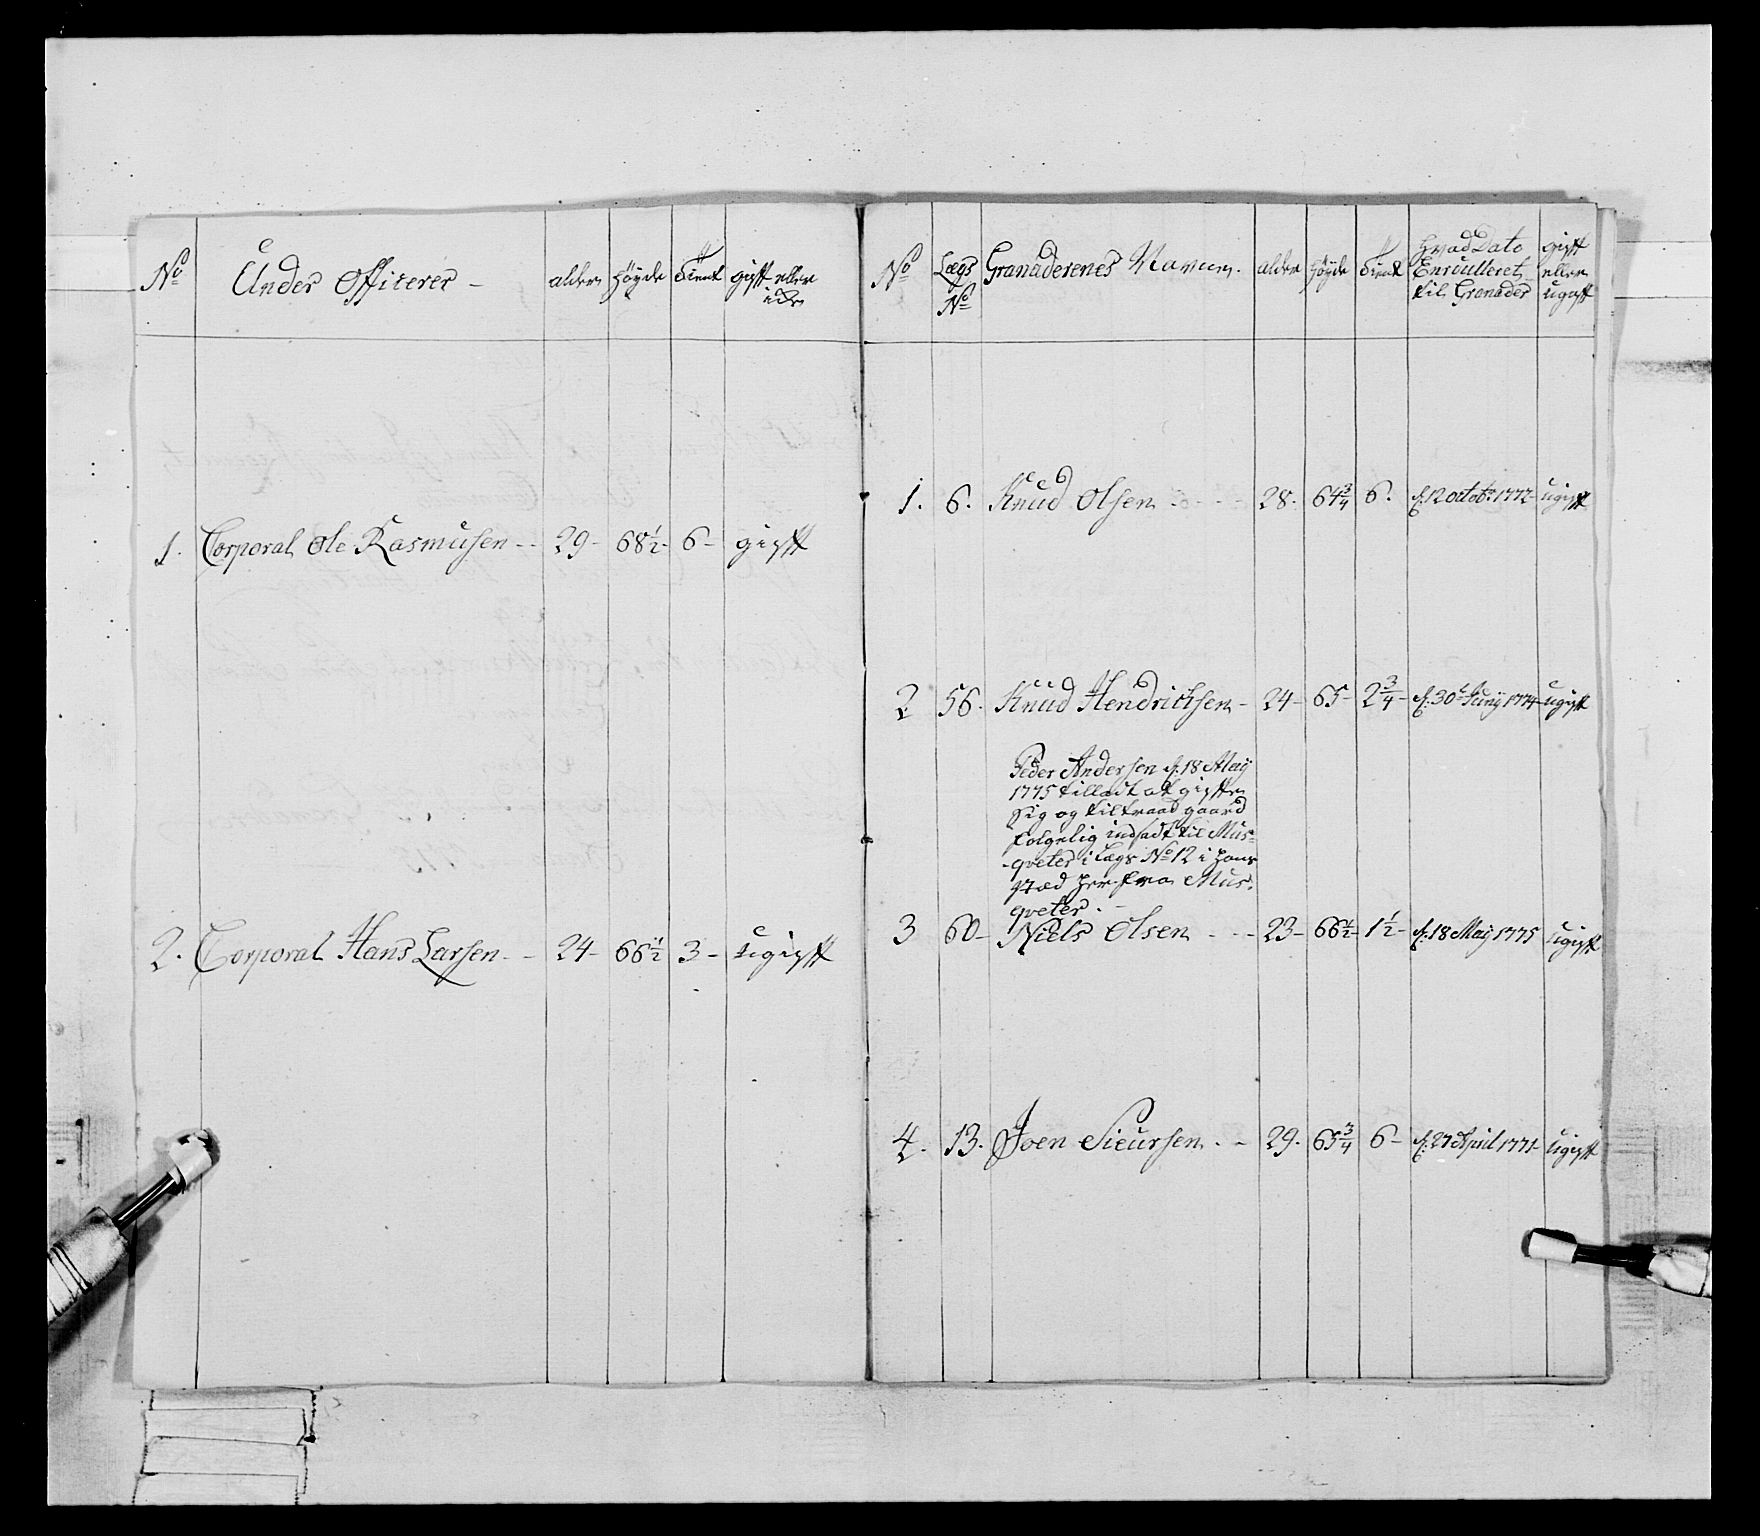 No Under Officerer - alder Høyde Tient gift eller ide
1. Corporal Ole Rasmusen - - 29 - 68 1/2 - 6 - gift
2. Corporal Hans Larsen - - 24 - 66 1/2 3 - ugift
No Lægs No Granaderenes Navne. alder Høyde Tient Hvad Dato Enrulleret til Granader gift eller ugift
1. 6. Knud Olsen - - - 28. 64 3/4 6. d. 12 octobr 1772 - ugift
2 56. Knud Hendrichsen - 24 - 65 - 2 3/4 - d. 30te Junij 1774 - ugift
Peder Andersen d. 18 Maij
1775 tilladt at gifte
sig og tiltraad gaard
følgelig indsadt til Mus-
-qveter i Lægs No 12 i hans
stæd her fra Mus-
qveter. -
3 60 - Niels Olsen - - - 23 - 66 1/2 - 1 1/2 - d. 18 Maij 1775 ugift
4. 13. Joen Siursen - - 29. 65 3/4 6 - d. 27 April 1771 - ugift